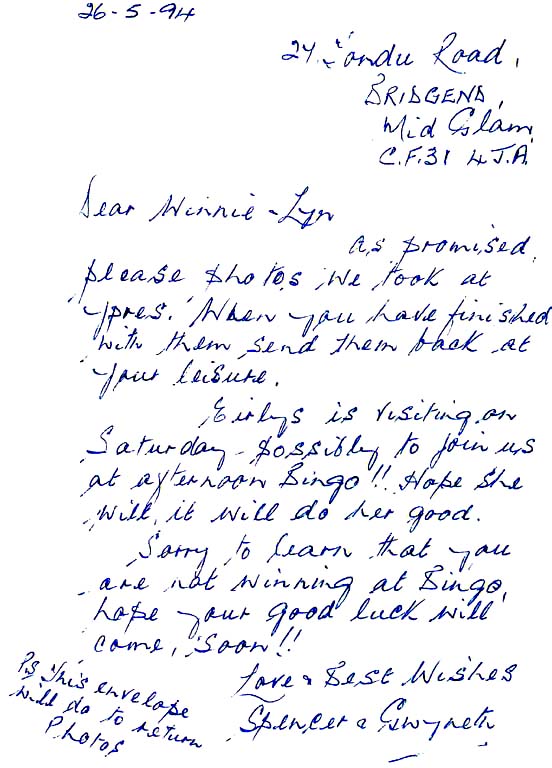 26-5-94
24, Tondu Road,
BRIDGEND,
Mid Glam,
C.F.31 4.J.A.
Dear Winnie - Lyn
As promised,
please photos we took at
Ypres. When you have finished
with them send them back at
your leisure.
Eirlys is visiting on
Saturday - possibly to join us
at afternoon Bingo!! Hope she
will, it will do her good.
Sorry to learn that you
are not winning at Bingo,
hope your good luck will
come, soon!!
Love & Best Wishes
Spencer & Gwyneth
PS This envelope
will do to return
Photos